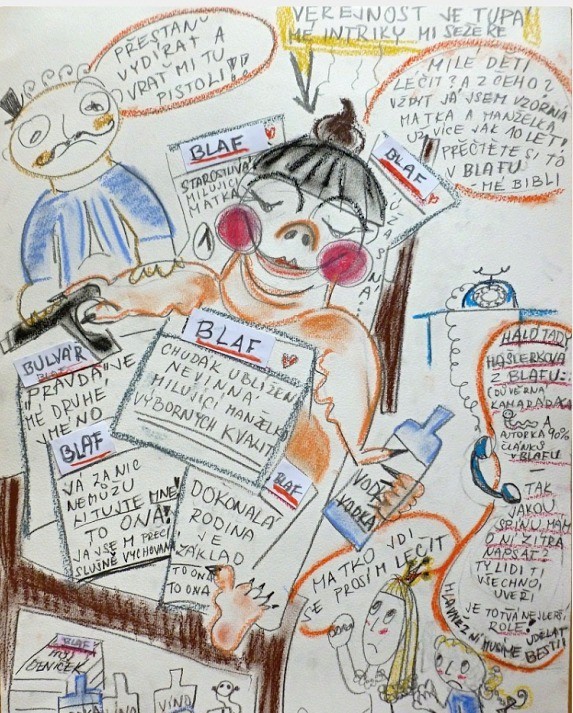 VEŘEJNOST JE TUPÁ
MÉ INTRIKY MI SEŽERE
PŘESTAŇ
VYDÍRAT A
VRAŤ MI TU
PISTOLI!!!
MILÉ DĚTI
LÉČIT? A Z ČEHO?
VŽDYŤ JÁ JSEM VZORNÁ
MATKA A MANŽELKA
UŽ VÍCE JAK 10 LET!
PŘEČTĚTE SI TO
V BLAFU
MÉ BIBLI
BLAF
STAROSTLIVÁ
MILUJÍCÍ
MATKA
BLAF
BLAF
CHUDÁK UBLÍŽEN
NEVINNÁ
MILUJÍCÍ MANŽELKA
VÝBORNÝCH KVALIT
BULVÁR
"PRAVDA" JE
MÉ DRUHÉ
JMÉNO
BLAF
JÁ ZA NIC
NEMŮŽU
LITUJTE MNE!
TO ONA!
JÁ JSEM PŘECI
SLUŠNĚ VYCHOVANÁ
BLAF
DOKONALÁ
RODINA
JE
ZÁKLAD
TO ONA
TO ONA
VODKA
VODKA
HALÓ TADY
HAŠLERKOVÁ
Z BLAFU
DŮVĚRNÁ
KAMARÁDKA
A
AUTORKA 90%
ČLÁNKŮ
V BLAFU
TAK
JAKOU
ŠPÍNU MÁM
O NÍ ZÍTRA
NAPSAT?
TY LIDI TI
VŠECHNO
UVĚŘÍ
JE TO TVÁ NEJLEPŠÍ
ROLE!
HLAVNĚ Z NÍ MUSÍME UDĚLAT
BESTII!
MATKO JDI
SE PROSÍM LÉČIT
BLAF
MŮJ
DENÍČEK
VÍNO